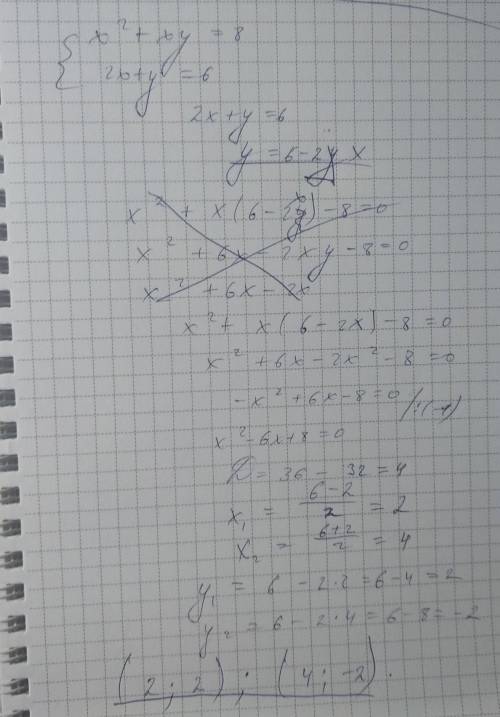 { x² + xy = 8
2x+y = 6
2x+y=6
y = 6-2x
x² + x(6-2x)-8=0
x² +6x-2xy-8=0
x² +6x-2x
x²+ x(6-2x)-8=0
x² +6x-2x²-8=0
-x²+6x-8=0 /:(-1)
x²-6x+8=0
D=36-32=4
x₁ = (6-2)/2 = 2
x₂ = (6+2)/2 = 4
y₁ = 6-2·2=6-4=2
y₂ = 6-2·4=6-8=-2
(2; 2); (4; -2).